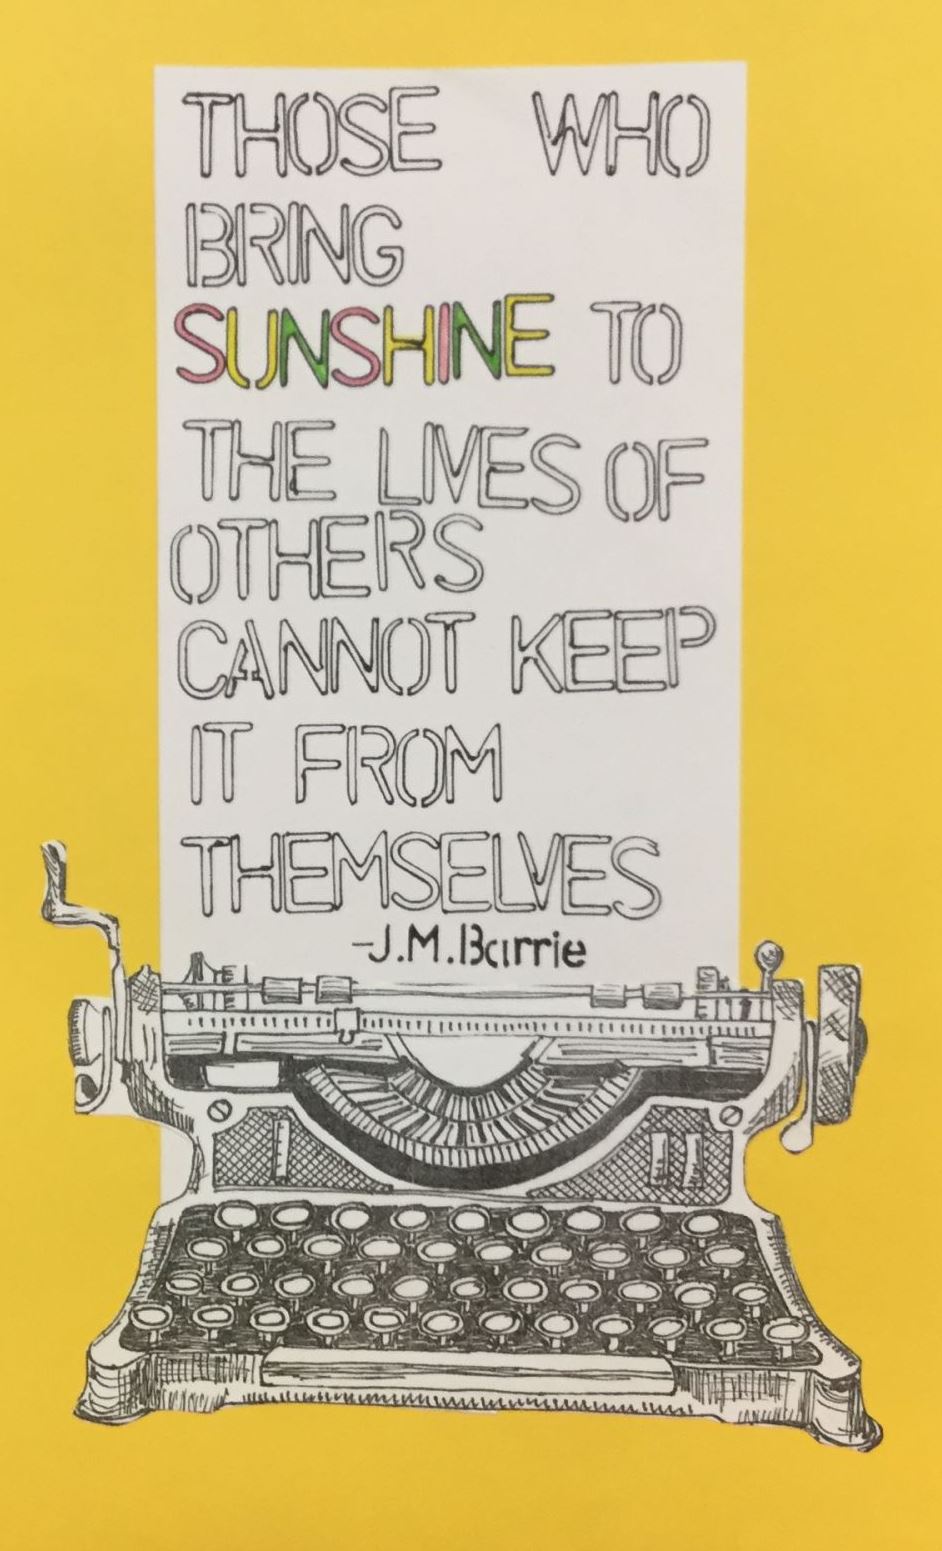 THOSE WHO
BRING
SUNSHINE TO
THE LIVES OF
OTHERS
CANNOT KEEP
IT FROM
THEMSELVES
-J.M.Barrie